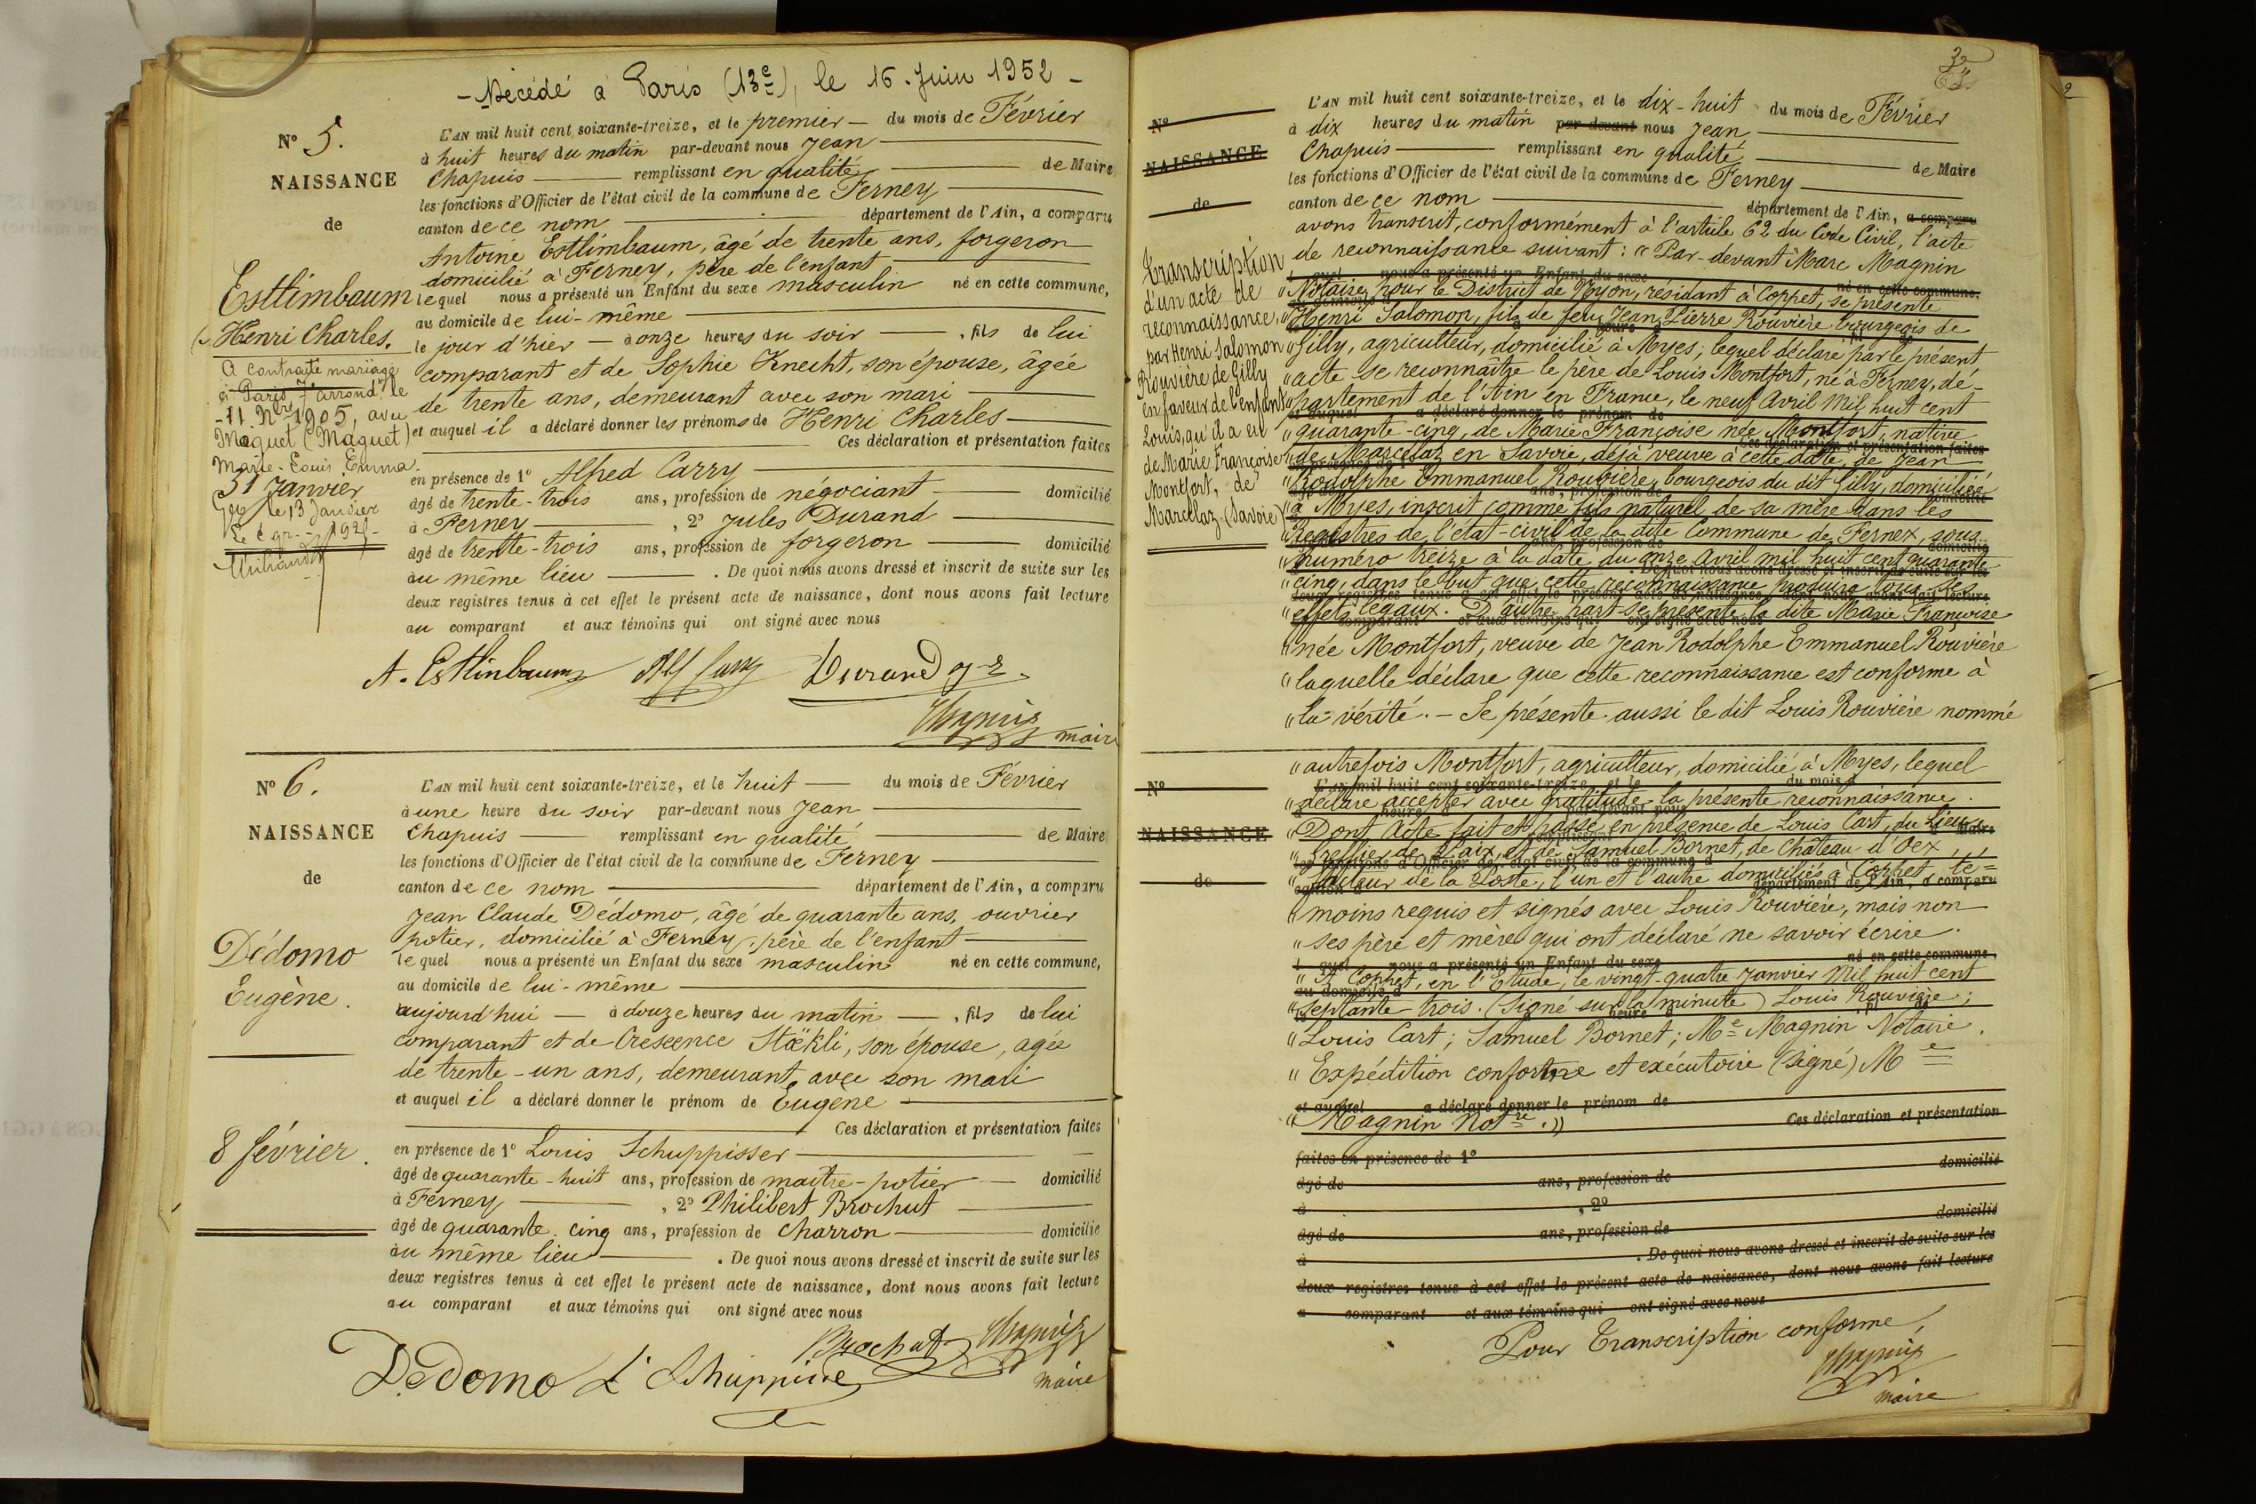 - Décédé à Paris (13e), le 16 Juin 1952 -
No 5.
NAISSANCE
de
Estlimbaum
Henri Charles.
A contracté mariage
à Paris 7e arrondt le
11 Nbre 1905, avec
Maquet (Maquet)
Marie-Louis Emma.
31 Janvier
Gex le 13 Janvier
1921
L'AN mil huit cent soixante-treize, et le premier — du mois de Février
à huit heures du matin par-devant nous Jean
Chapuis — remplissant en qualité — de Maire
les fonctions d'Officier de l'état civil de la commune de Ferney
canton de ce nom — département de l'Ain, a comparu
Antoine Estlimbaum, âgé de trente ans, forgeron
domicilié à Ferney, père de l'enfant
lequel nous a présenté un Enfant du sexe masculin né en cette commune,
au domicile de lui-même
le jour d'hier — à onze heures du soir — , fils de lui
comparant et de Sophie Knecht, son épouse, âgée
de trente ans, demeurant avec son mari
et auquel il a déclaré donner les prénoms de Henri Charles
Ces déclaration et présentation faites
en présence de 1o Alfred Carry
âgé de trente-trois ans, profession de négociant — domicilié
à Ferney — , 2o Jules Durand
âgé de trente-trois ans, profession de forgeron — domicilié
au même lieu — . De quoi nous avons dressé et inscrit de suite sur les
deux registres tenus à cet effet le présent acte de naissance, dont nous avons fait lecture
au comparant et aux témoins qui ont signé avec nous
A. Estlinbaum Alf Carry Durand
Chapuis maire
No 6.
NAISSANCE
de
Dédomo
Eugène.
8 février.
L'AN mil huit cent soixante-treize, et le huit — du mois de Février
à une heure du soir par-devant nous Jean
Chapuis — remplissant en qualité — de Maire
les fonctions d'Officier de l'état civil de la commune de Ferney
canton de ce nom — département de l'Ain, a comparu
Jean Claude Dédomo, âgé de quarante ans, ouvrier
potier, domicilié à Ferney, père de l'enfant
lequel nous a présenté un Enfant du sexe masculin né en cette commune,
au domicile de lui-même
aujourd'hui — à douze heures du matin — , fils de lui
comparant et de Crescence Stökli, son épouse, agée
de trente-un ans, demeurant avec son mari
et auquel il a déclaré donner le prénom de Eugène
Ces déclaration et présentation faites
en présence de 1o Louis Schuppisser
âgé de quarante-huit ans, profession de maître-potier — domicilié
à Ferney — , 2o Philibert Brochut
âgé de quarante cinq ans, profession de charron — domicilié
au même lieu — . De quoi nous avons dressé et inscrit de suite sur les
deux registres tenus à cet effet le présent acte de naissance, dont nous avons fait lecture
au comparant et aux témoins qui ont signé avec nous
Brochut Chapuis
Dedomo L Schuppisse maire
No
NAISSANCE
de
Transcription
d'un acte de
reconnaissance,
par Henri Salomon
Rouvière de Gilly
en faveur de l'enfant
Louis, qu'il a eu
de Marie Françoise
Montfort, de
Marcelaz (Savoie)
L'AN mil huit cent soixante-treize, et le dix-huit du mois de Février
à dix heures du matin par-devant nous Jean
Chapuis — remplissant en qualité — de Maire
les fonctions d'Officier de l'état civil de la commune de Ferney
canton de ce nom — département de l'Ain, a comparu
avons transcrit, conformément à l'article 62 du Code Civil, l'acte
de reconnaissance suivant : "Par-devant Marc Magnin
l quel nous a présenté un Enfant du sexe né en cette commune,
"Notaire, pour le District de Nyon, résidant à Coppet, se présente
"Henri Salomon, fils de feu Jean Pierre Rouvière bourgeois de
"Gilly, agriculteur, domicilié à Myes ; lequel déclare par le présent
"acte se reconnaître le père de Louis Montfort, né à Ferney, dé-
"partement de l'Ain en France, le neuf Avril Mil huit cent
et auquel a déclaré donner le prénom de
"quarante-cinq, de Marie Françoise née Montfort, native
Ces déclaration et présentation faites
"de Marcelaz en Savoie, déjà veuve à cette date, de Jean
"Rodolphe Emmanuel Rouvière, bourgeois du dit Gilly, domiciliée
ans, profession de domicilié
"à Myes, inscrit comme fils naturel de sa mère dans les
"Registres de l'état-civil de la dite Commune de Fernex, sous
ans, profession de domicilié
"numéro treize à la date du onze Avril mil huit cent quarante
De quoi nous avons dressé et inscrit de suite sur les
"cinq, dans le but que cette reconnaissance produise tous ses
deux registres tenus à cet effet le présent acte de naissance, dont nous avons fait lecture
"effets légaux. D'autre part se présente la dite Marie Françoise
comparant et aux témoins qui ont signé avec nous
"née Montfort, veuve de Jean Rodolphe Emmanuel Rouvière
"laquelle déclare que cette reconnaissance est conforme à
"la vérité. - Se présente aussi le dit Louis Rouvière nommé
No
NAISSANCE
de
"autrefois Montfort, agriculteur, domicilié à Myes, lequel
L'AN mil huit cent soixante-treize, et le du mois d
"déclare accepter avec gratitude la présente reconnaissance.
"Dont Acte fait et passé en présence de Louis Cart, du Lieu,
"Greffier de Paix, et de Samuel Bornet, de Château d'Oex,
les fonctions d'Officier de l'état civil de la commune d
"facteur de la Poste, l'un et l'autre domiciliés à Coppet, té-
canton d département de l'Ain, a comparu
"moins requis et signés avec Louis Rouvière, mais non
"ses père et mère qui ont déclaré ne savoir écrire.
l quel nous a présenté un Enfant du sexe né en cette commune,
"A Coppet, en l'Etude, le vingt-quatre Janvier Mil huit cent
au domicile d
"septante trois. (Signé sur la minute) Louis Rouvière ;
"Louis Cart ; Samuel Bornet ; Mc Magnin Notaire.
"Expédition conforme et exécutoire (signé) Mc
et auquel a déclaré donner le prénom de
"Magnin Notre."
Ces déclaration et présentation
faites en présence de 1o
âgé de ans, profession de domicilié
à , 2o
âgé de ans, profession de domicilié
à . De quoi nous avons dressé et inscrit de suite sur les
deux registres tenus à cet effet le présent acte de naissance, dont nous avons fait lecture
a comparant et aux témoins qui ont signé avec nous
Pour Transcription conforme,
Chapuis
maire